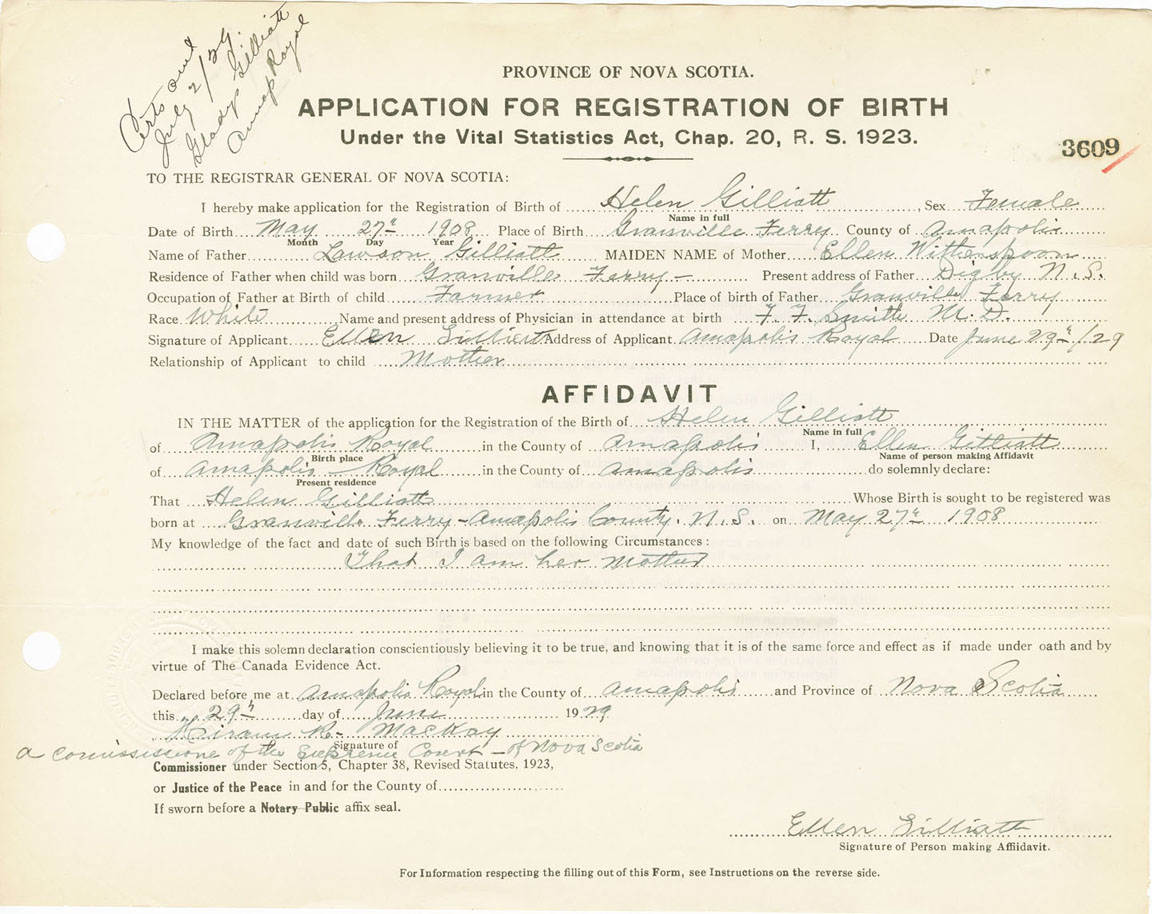 Certs out
July 2/29.
Gladys Gilliatt
Annap Royal
PROVINCE OF NOVA SCOTIA.
APPLICATION FOR REGISTRATION OF BIRTH
Under the Vital Statistics Act, Chap. 20, R. S. 1923.
3609
TO THE REGISTRAR GENERAL OF NOVA SCOTIA:
I hereby make application for the Registration of Birth of Helen Gilliatt, Sex Female
Name in full
Date of Birth May 27th 1908 Place of Birth Granville Ferry County of Annapolis
Month Day Year
Name of Father Lawson Gilliatt MAIDEN NAME of Mother Ellen Witherspoon
Residence of Father when child was born Granville Ferry - Present address of Father Digby N.S.
Occupation of Father at Birth of child Farmer Place of birth of Father Granville Ferry
Race White Name and present address of Physician in attendance at birth F. F. Smith M.D.
Signature of Applicant Ellen Gilliatt Address of Applicant Annapolis Royal Date June 29th/29
Relationship of Applicant to child Mother
AFFIDAVIT
IN THE MATTER of the application for the Registration of the Birth of Helen Gilliatt
Name in full
of Annapolis Royal in the County of Annapolis I, Ellen Gilliatt
Birth place Name of person making Affidavit
of Annapolis Royal in the County of Annapolis do solemnly declare:
Present residence
That Helen Gilliatt Whose Birth is sought to be registered was
born at Granville Ferry - Annapolis County. N.S. on May 27th 1908
My knowledge of the fact and date of such Birth is based on the following Circumstances:
That I am her Mother
I make this solemn declaration conscientiously believing it to be true, and knowing that it is of the same force and effect as if made under oath and by
virtue of The Canada Evidence Act.
Declared before me at Annapolis Royal in the County of Annapolis and Province of Nova Scotia
this 29th day of June 1929
Hiram R. MacKay
Signature of
a commissioner of the Supreme Court - of Nova Scotia
Commissioner under Section 5, Chapter 38, Revised Statutes, 1923,
or Justice of the Peace in and for the County of
If sworn before a Notary Public affix seal.
Ellen Gilliatt
Signature of Person making Affiidavit.
For Information respecting the filling out of this Form, see Instructions on the reverse side.